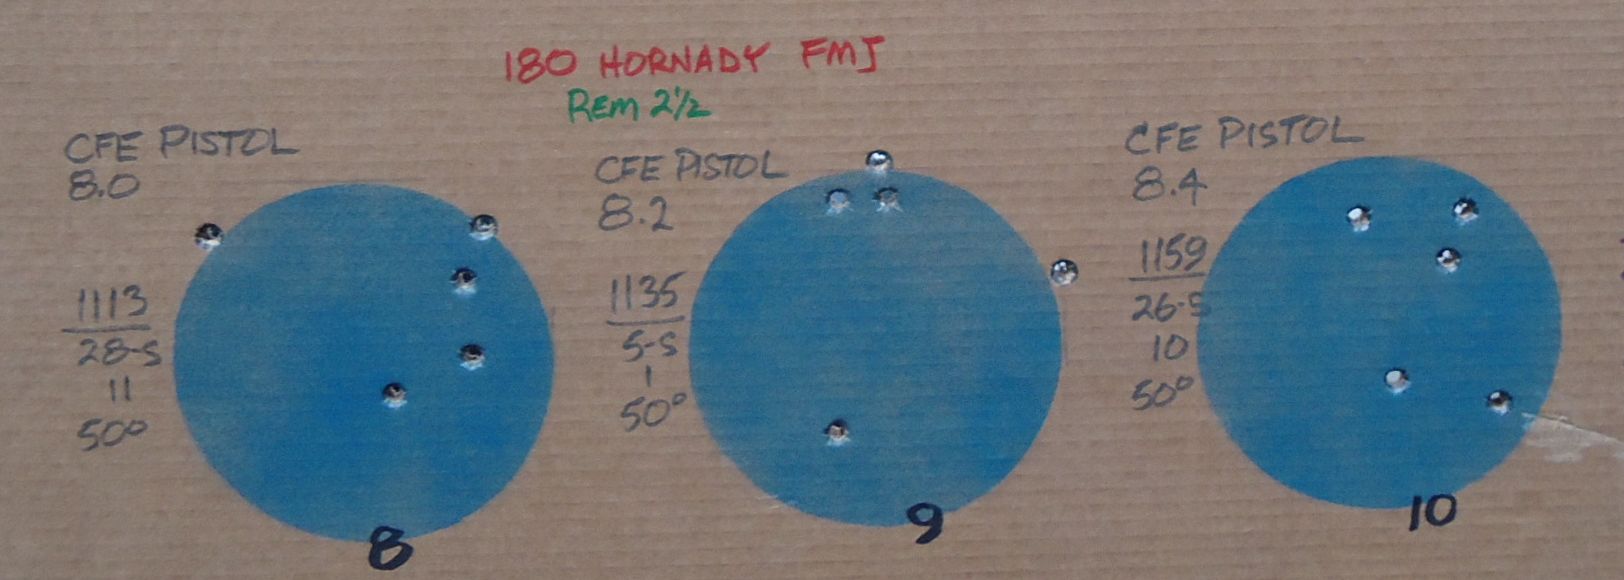 180 HORNADY FMJ
REM 2½
CFE PISTOL
8.0
1113
28-S
11
50°
8
CFE PISTOL
8.2
1135
5-S
1
50°
9
CFE PISTOL
8.4
1159
26-S
10
50°
10